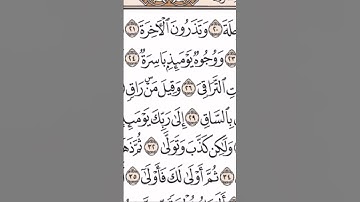 جِلَةَ ٢٠ وَتَذَرُونَ ٱلْآخِرَةَ ٢١
٢٣ وَوُجُوهٌ يَوْمَئِذٍۭ بَاسِرَةٌ ٢٤
تِ ٱلتَّرَاقِىَ ٢٦ وَقِيلَ مَنْ رَاقٍ
بِٱلسَّاقِ ٢٩ إِلَىٰ رَبِّكَ يَوْمَئِذٍ
وَلَٰكِن كَذَّبَ وَتَوَلَّىٰ ٣٢ ثُمَّ ذَهَ
٣٤ ثُمَّ أَوْلَىٰ لَكَ فَأَوْلَىٰٓ ٣٥